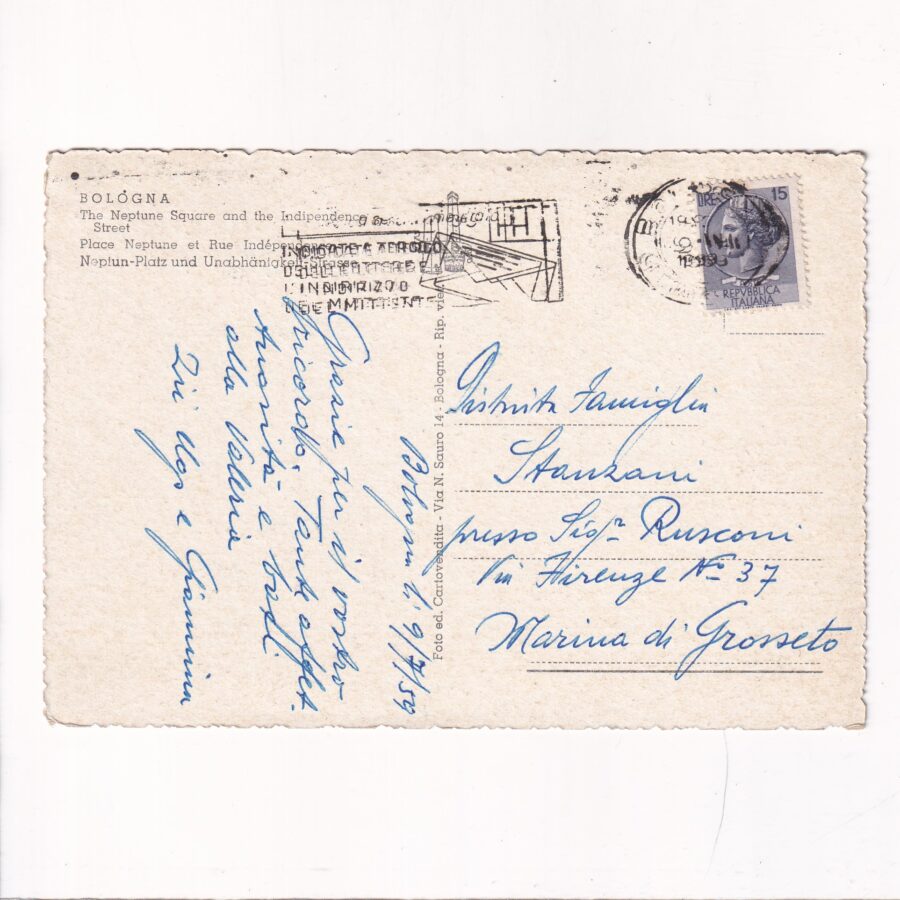 BOLOGNA
The Neptune Square and the Indipendence
Street
Place Neptune et Rue Indépendence
Neptun-Platz und Unabhänigkeit-Strasse
INDICATE A TERGO
DELLE LETTERE
L'INDIRIZZO
DEL MITTENTE
LIRE 15
REPVBBLICA
ITALIANA
Foto ed. Cartovendita - Via N. Sauro 14 - Bologna - Rip. vie
Bologna li 9/7/59
Grazie per il vostro
ricordo. Tante affet
tuosità e baci
alla Valeria
Zii Ugo e Giannina
Distinta Famiglia
Stanzani
presso Sigr Rusconi
Via Firenze No 37
Marina di Grosseto